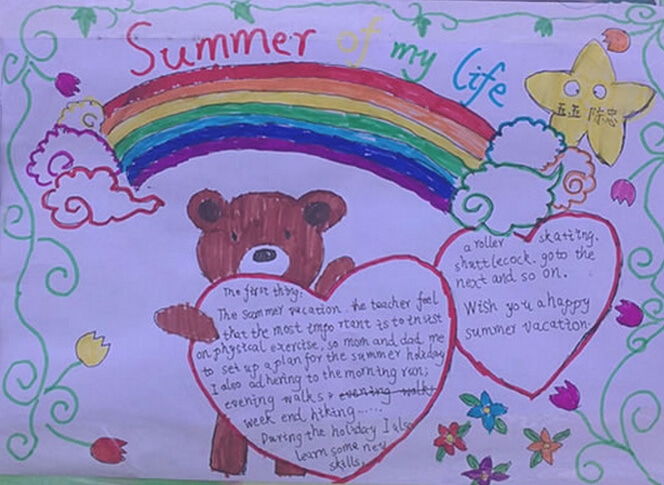 Summer of my life
五五 陈忠
The first thing:
The summer vacation. the teacher feel
that the most important is to insist
on physical exercise, so mom and dad me
to set up a plan for the summer holiday
I also adhering to the morning run;
evening walks, evening walks
week end, hiking......
During the holiday I also
learn some new
skills,
a roller skating.
shuttlecock. goto the
next and so on.
Wish you a happy
summer vacation.